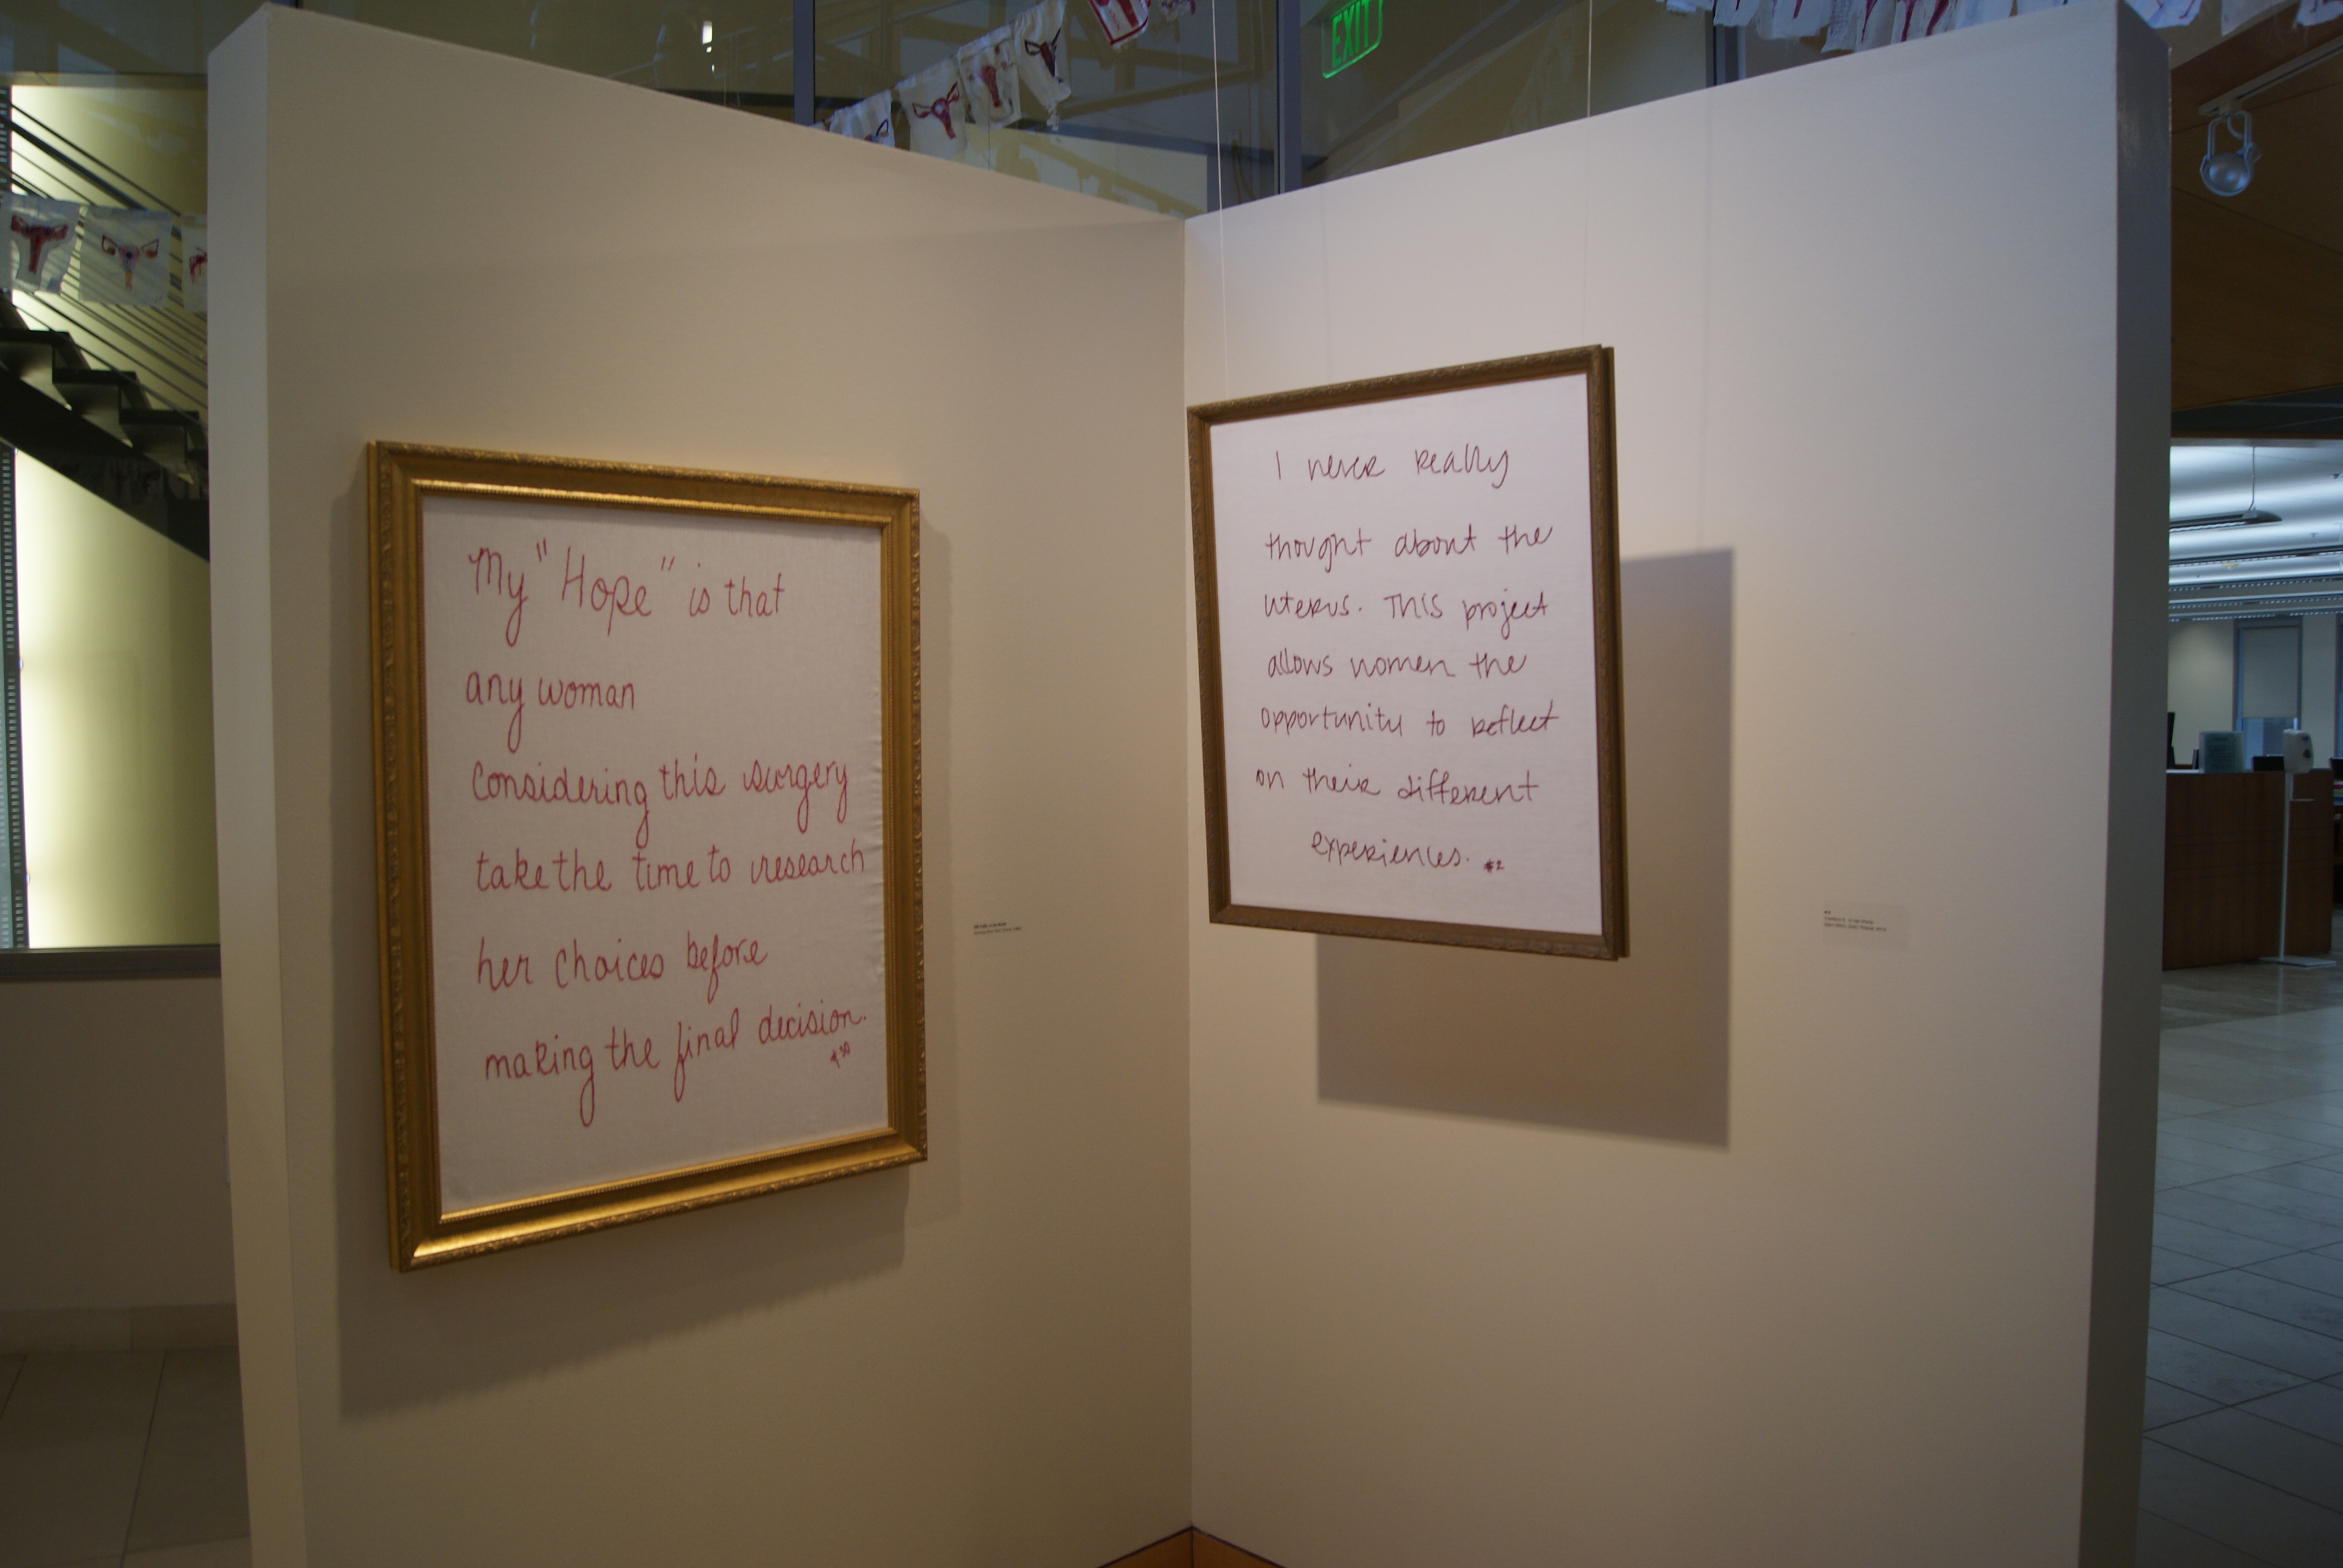 EXIT
My "Hope" is that
any woman
Considering this surgery
take the time to research
her choices before
making the final decision.
#50
I never really
thought about the
uterus. This project
allows women the
opportunity to reflect
on their different
experiences. #2